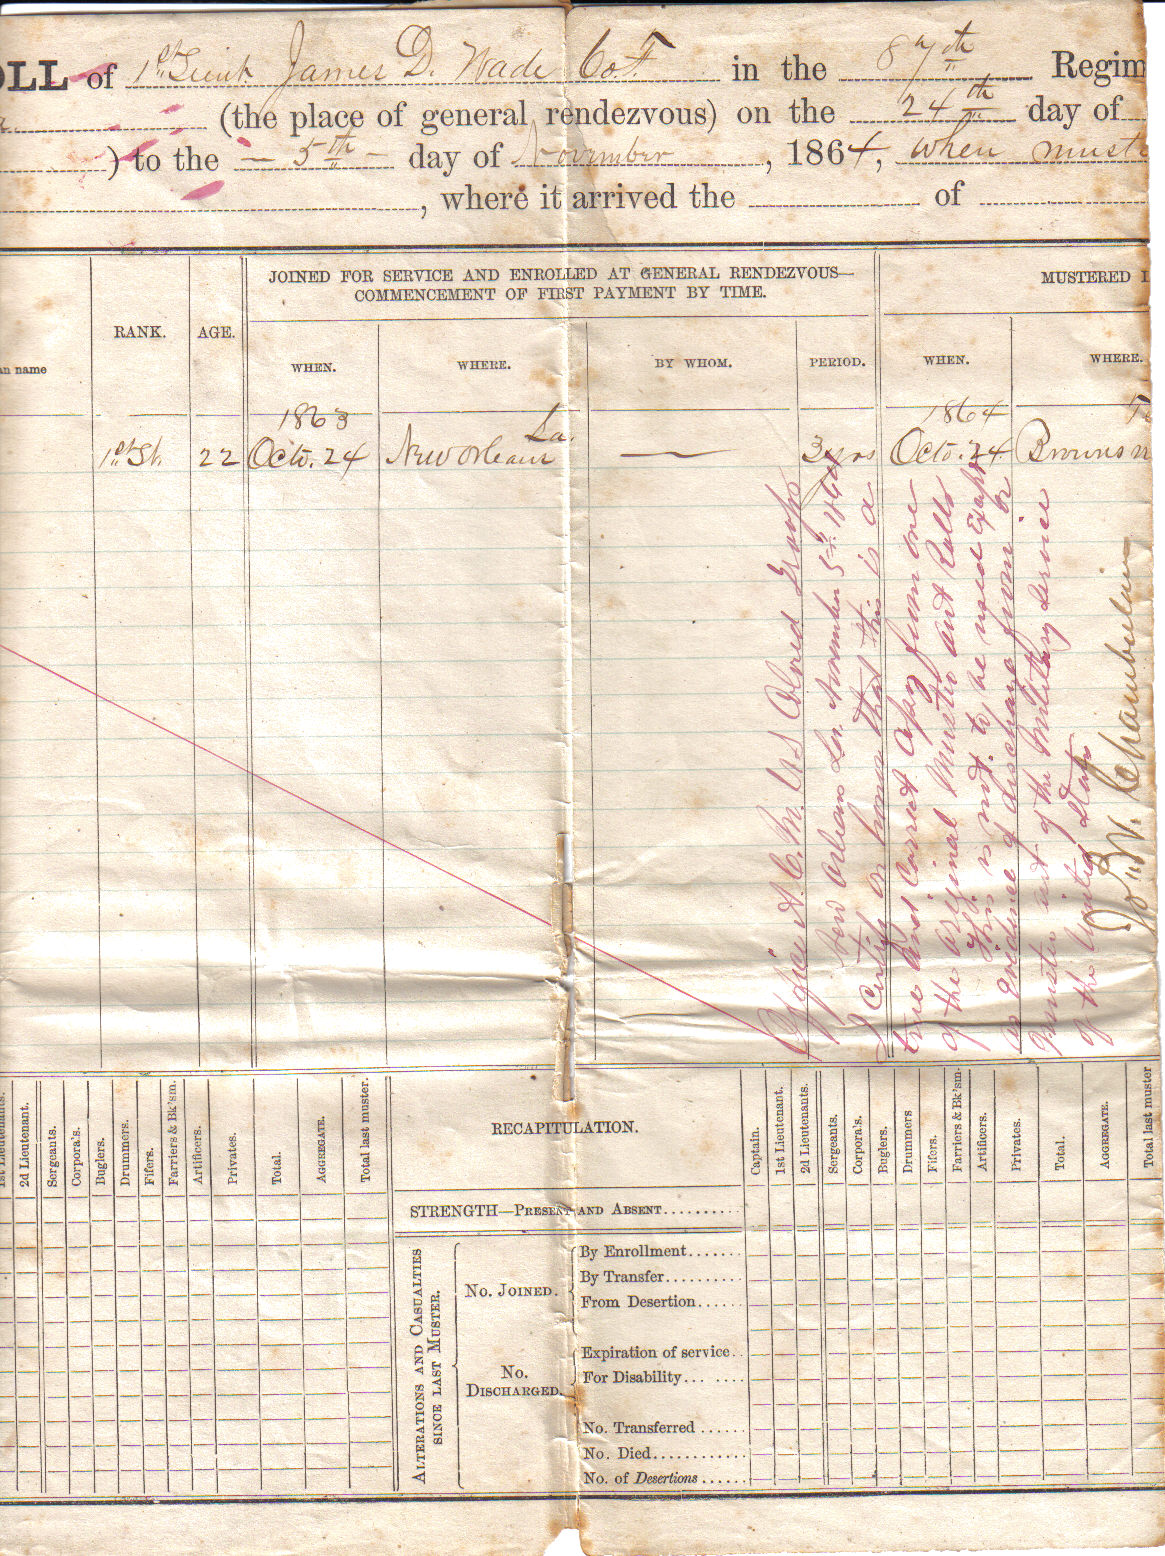 OLL of 1st Lieut James D. Wade Co. F. in the 87th Regim
a. (the place of general rendezvous) on the 24th day of
) to the — 5th — day of November, 1864, when muste
, where it arrived the of
JOINED FOR SERVICE AND ENROLLED AT GENERAL RENDEZVOUS—
COMMENCEMENT OF FIRST PAYMENT BY TIME.
MUSTERED I
an name
RANK.
AGE.
WHEN.
WHERE.
BY WHOM.
PERIOD.
WHEN.
WHERE.
1863
La.
1864
1st Lt. 22 Octo. 24 New Orleans — 3 yrs Octo. 24 Browns
Office A. C. M. U.S. Colored Troops
New Orleans La. November 5th 1864
I Certify on honor that this is a
true and Correct Copy from one
of the Original Muster out Rolls
This is not to be used except
as evidence of discharge from or
muster out of the Military Service
of the United States
Jno. W. Chamberlain
1st Lieutenants.
2d Lieutenant.
Sergeants.
Corpora's.
Buglers.
Drummers.
Fifers.
Farriers & Bk'sm.
Artificers.
Privates.
Total.
AGGREGATE.
Total last muster.
RECAPITULATION.
Captain.
1st Lieutenant.
2d Lieutenants.
Sergeants.
Corpora's.
Buglers.
Drummers
Fifers.
Farriers & Bk'sm.
Artificers.
Privates.
Total.
AGGREGATE.
Total last muster
STRENGTH—PRESENT AND ABSENT..........
ALTERATIONS AND CASUALTIES
SINCE LAST MUSTER.
No. JOINED.
By Enrollment.......
By Transfer..........
From Desertion......
No.
DISCHARGED.
Expiration of service..
For Disability... ....
No. Transferred ......
No. Died.............
No. of Desertions ......